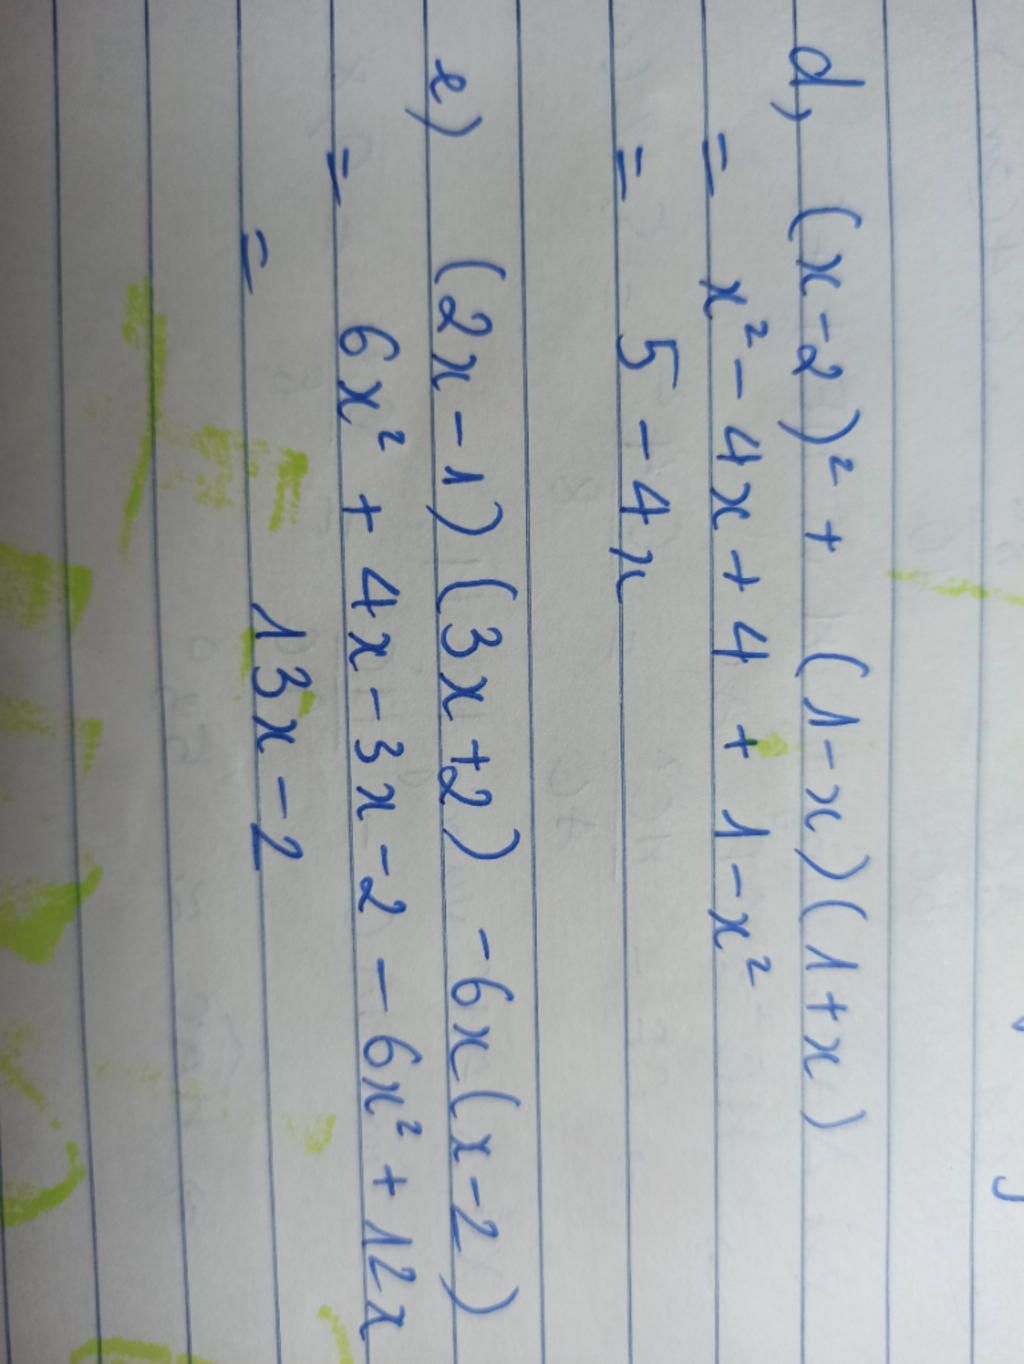 d, (x-2)² + (1-x)(1+x)
= x² - 4x + 4 + 1 - x²
= 5 - 4x
e) (2x-1)(3x+2) - 6x(x-2)
= 6x² + 4x - 3x - 2 - 6x² + 12x
= 13x - 2